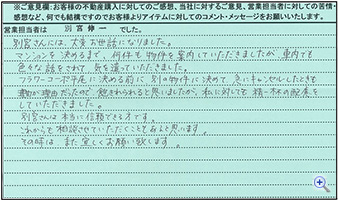 ※ご意見欄:お客様の不動産購入に対してのご感想、当社に対するご意見、営業担当者に対しての苦情・
感想など、何でも結構ですのでお客様よりアイテムに対してのコメント・メッセージをお願いいたします。
営業担当者は 別宮伸一 でした。
別宮さんには、大変お世話になりました。
マンションを決めるまで、何件も物件を案内していただきましたが、車内でも
色々な話をされて気を遣っていただきました。
フラワーコーポ平尾に決める前に、別の物件に決めて急にキャンセルしたときも
理由だったので、怒られると思いましたが、私に対しても精一杯の配慮を
していただきました。
別宮さんは本当に信頼できる方です。
これからも相談させていただくこともあると思います。
その時は、また宜しくお願い致します。